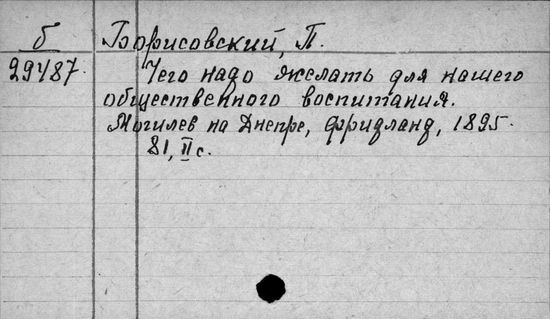 б Борисовский, П.
29487. Чего надо желать для нашего
общественного воспитания.
Могилев на Днепре, Фридланд, 1895.
81, II с.